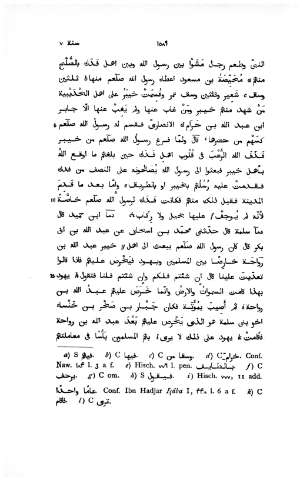 سنة ٧ ١٥٨٩
الذين وطعم رجل مَشَوْا بين رسول الله وبين اهل فدك بالصُّلْح
منهم مُحَيِّصة بن مسعود اعطاه رسول الله صلعم منها ثلثين
وسقَ شعير وثلثين وسقَ تمر وقُسمتْ خيبرُ على اهل الحُدَيْبِيَة
مَنْ شهد منهم خيبرَ ومَنْ غاب عنها ولم يَغِبْ عنها الّا جابر
ابن عبد الله بن حَرام الانصارىّ فقسم له رسول الله صلعم
كسَهْم مَن حضرها، قال ولمّا فرغ رسول الله صلعم من خيبر
قذف الله الرُّعْبَ فى قلوب اهل فدك حين بلغهم ما اوقع اللهُ
بأهل خيبر فبعثوا الى رسول الله يُصالحونه على النصف من فدك
فقدمتْ عليه رُسُلُهم بخيبر او بالطريف وامّا بعد ما قدم
المدينة فقبل ذلك منهم فكانت فدك لرسول الله صلعم خاصّة
لأنّه لم يُوجَفْ عليها بخيل ولا ركاب، نا ابن حميد قال
نا سلمة قال حدّثنى محمد بن اسحاق عن عبد الله بن ابى
بكر قال كان رسول الله صلعم يبعث الى اهل خيبر عبد الله بن
رواحة خارصًا بين المسلمين ويهود فيَخْرُص عليهم فاذا قالوا
تعدّيتَ علينا قال ان شئتم فلكم وان شئتم فلنا فتقول يهود
بهذا قامت السموات والارض وانّما خَرَصَ عليهم عبد الله بن
رواحة ثمّ أُصيب بمُوتة فكان جَبّار بن صَخْر بن خَنْساء
اخو بنى سلمة هو الذى يَخْرُص عليهم بَعْدَ عبد الله بن رواحة
فأقامت يهود على ذلك لا يرى بهم المسلمون بأسًا فى معاملتهم
a) S فيهم. b) C فيها. c) C وسقا من. d) C حزام. Conf.
Naw. l. 3 a f. e) Hisch. l. pen. f) C
يرحف. g) C om. h) S فيقول. i) Hisch. ٧٧٧, 11 add.
Conf. Ibn Hadjar Içâba I, ٤٤٠ l. 6 a f. k) C
l) C ترى.